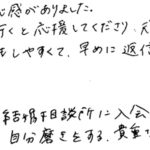 心感がありました。
行くと応援してくださり、元
もしやすくて、早めに返信
結婚相談所に入会
自分磨きをする、貴重な